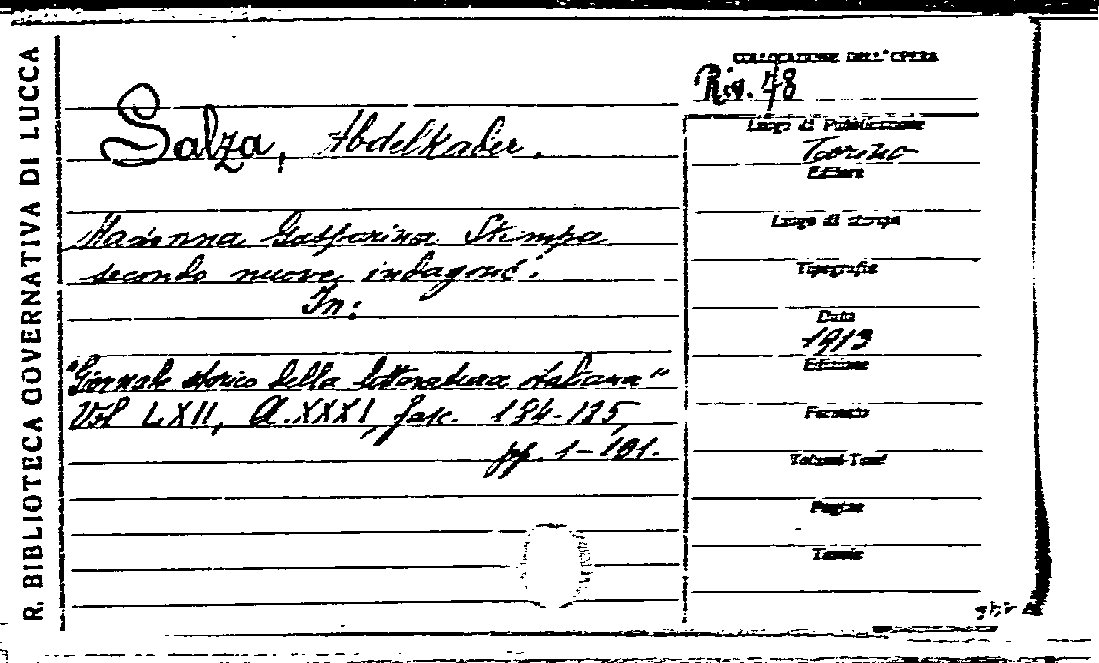 R. BIBLIOTECA GOVERNATIVA DI LUCCA
COLLOCAZIONE DELL'OPERA
Riv. 48
Salza, Abdelkader.
Madonna Gasparina Stampa
secondo nuove indagini.
In:
"Giornale storico della letteratura italiana"
Vol LXII, A. XXXI, fasc. 184-185,
pp. 1-101.
Luogo di Pubblicazione
Torino
Editore
Luogo di stampa
Tipografia
Data
1913
Edizione
Formato
Volumi-Tomi
Pagine
Tavole